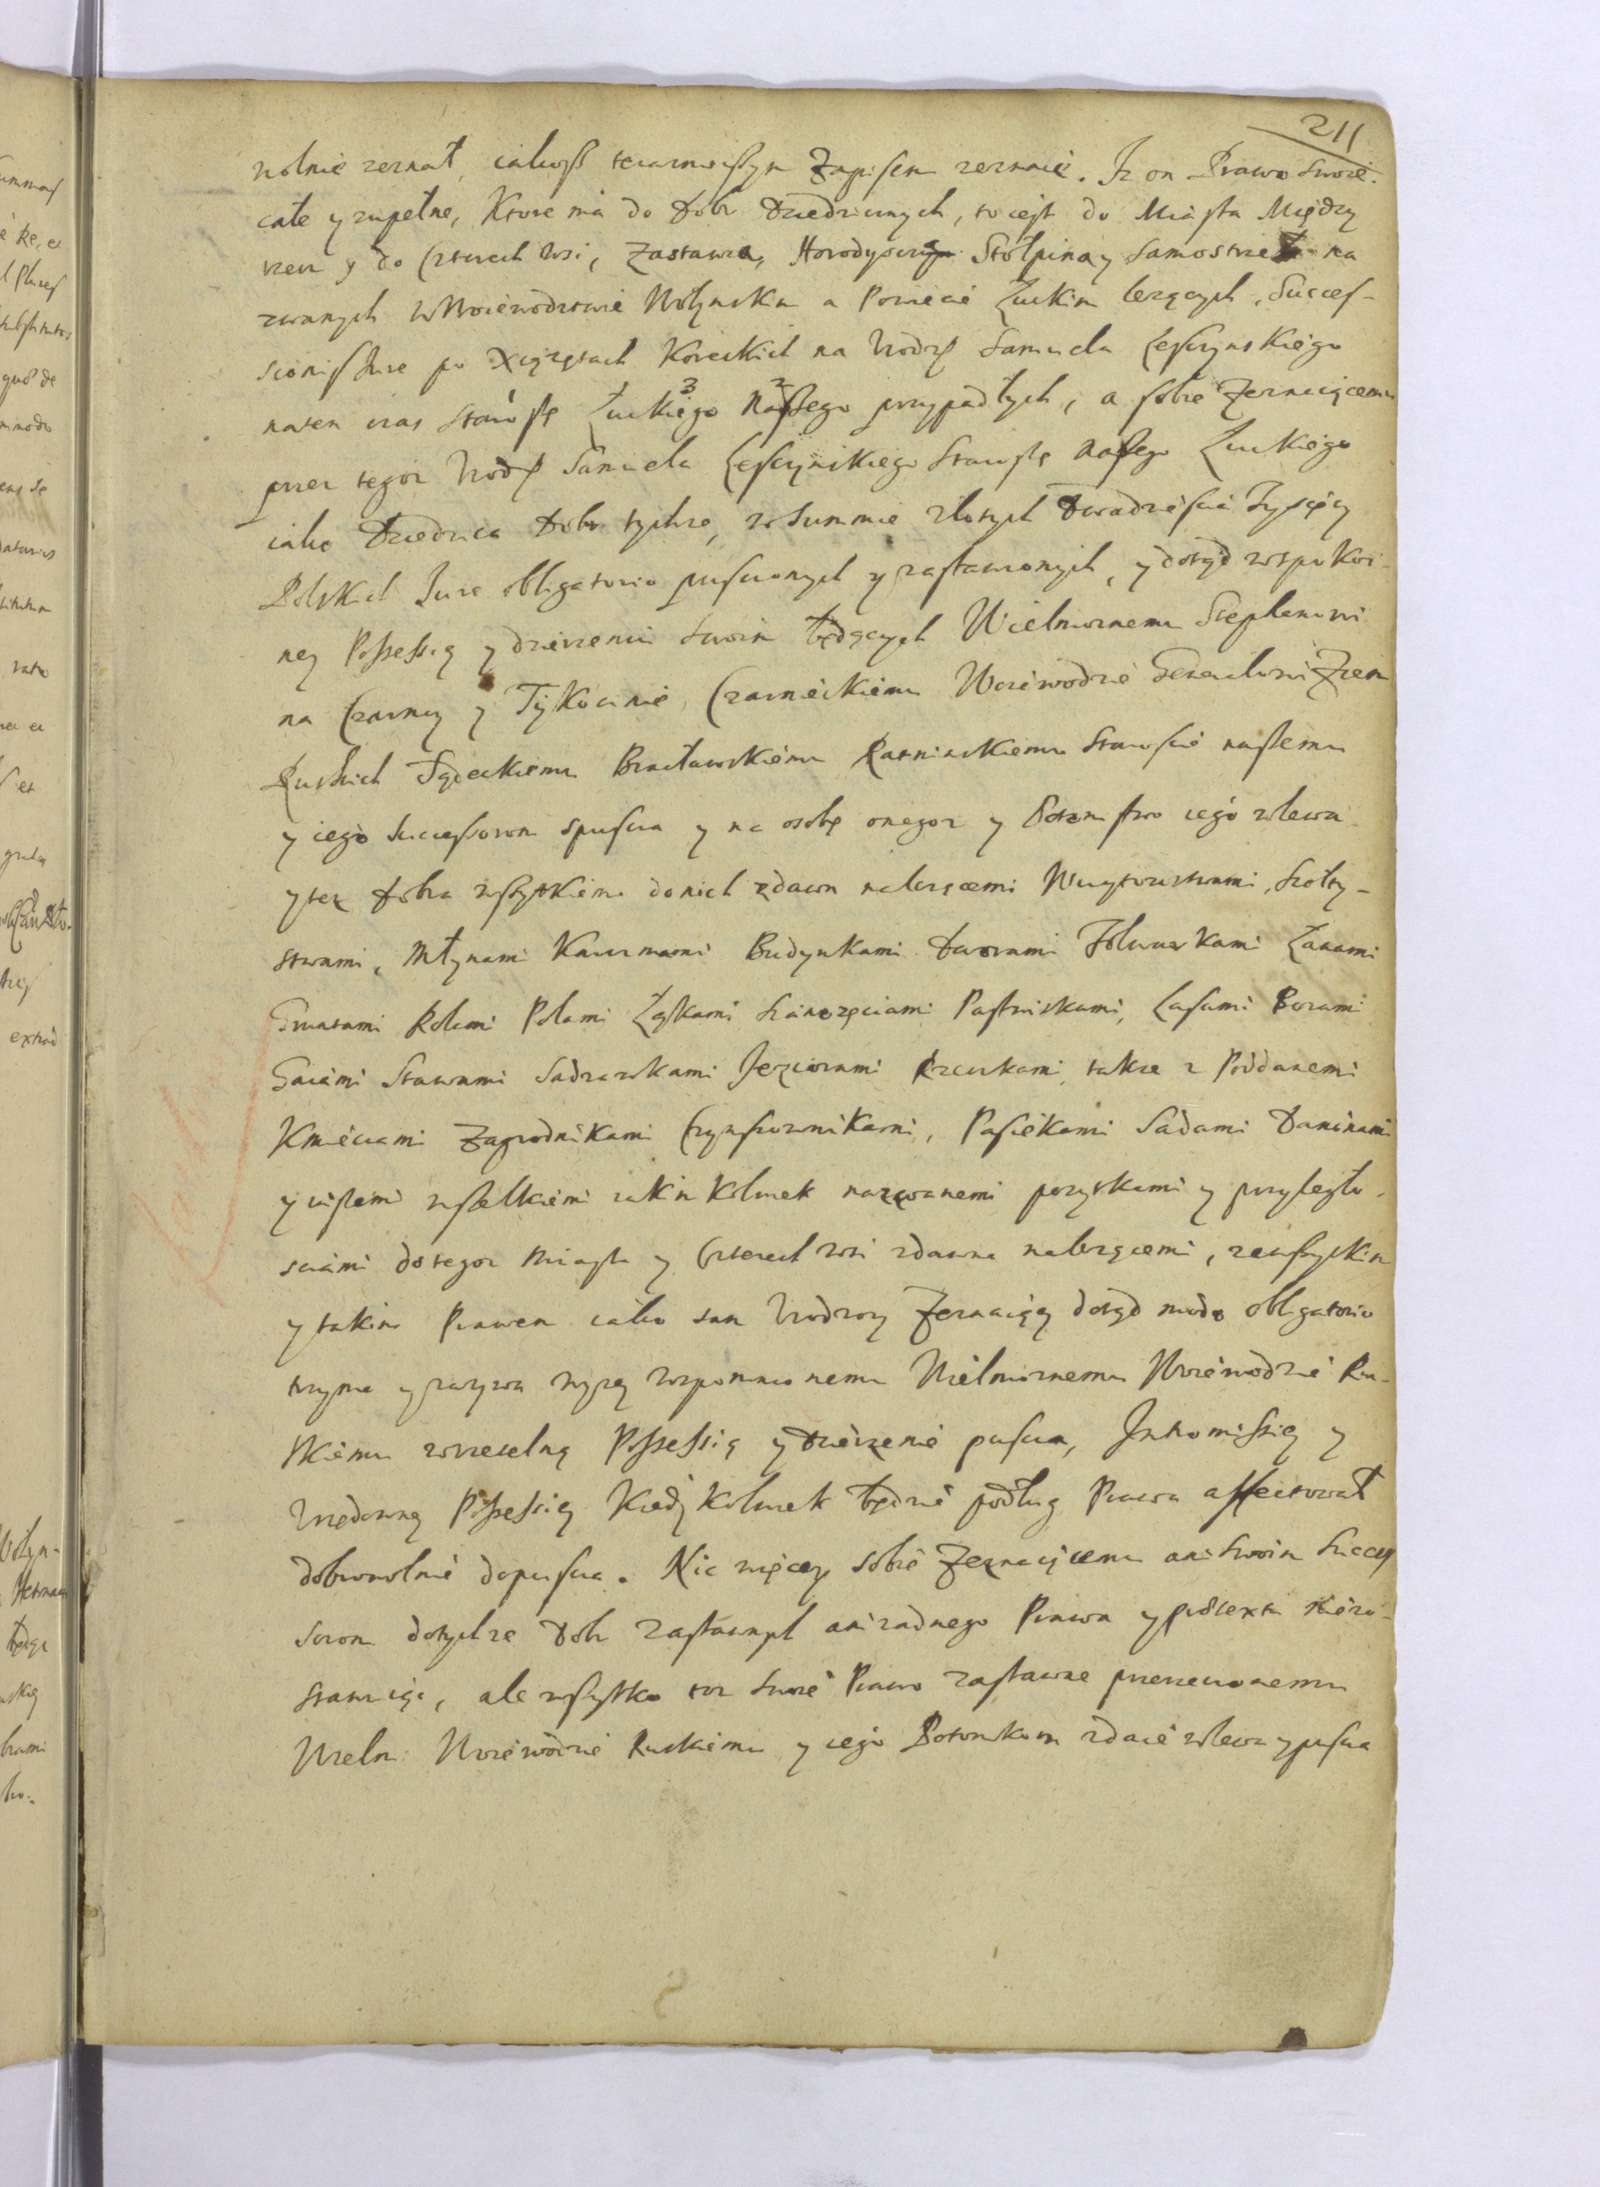 211
wolnie zeznał, iakoysz teraznieyszym Zapisem zeznaie. Iz on Prawo swoie
całe y zupełne, Ktore ma do Dobr Dziedzicznych, to iest do Miasta Między
rzecz y do Czterech wsi, Zastawia, Horodyszcza Stołpina y Samostrzał na
zwanych w Woiewodztwie Wołynskim a Powiecie Łuckim lezących, Succes-
sionis Iure po Xiązętach Koreckich na Urodz Samuela Leszczynskiego
na ten czas Starostę Łuckiego 3 Naszego 2 przypadłych, a sobie Zeznaiącemu
przez tegoz Urodz Samuela Leszczynskiego Starostę Naszego Łuckiego
iako Dziedzica Dobr tychze, w Summie złotych Dwadziescia Tysięcy
Polskich Iure obligatorio puszczonych y zastawionych, y dotyd w spokoi-
ney Possessyą y dzierzeniu swoim będących Wielmoznemu Stephanowi
na Czarncy y Tykocinie Czarnieckiemu Woiewodzie Generałowi Ziem
Ruskich Sądeckiemu Bracławskiemu Ratninskiemu Staroscie naszemu
y iego Successorom spuszcza y na osobę onegoz y Potomstwo iego wlewa
y tez Dobra wszytkiemi do nich zdawna nalezącemi Woytowstwami, Szołty-
stwami, Młynami Karczmami Budynkami Dworami Folwarkami Łanami
Gruntami Rolami Polami Łąkami Sianozęciami Pastwiskami, Lasami Borami
Gaiami Stawami Sadzawkami Jeziorami Rzeczkami, takze z Poddanemi
Kmieciami Zagrodnikami Czynszownikami, Pasiekami Sadami Daninami
y inszemi wszelkiemi iakim kolwiek nazwanemi pozytkami y przyległo-
sciami do tegoz Miasta y Czterech wsi zdawna nalezącemi, ze wszytkim
y takim Prawem iako sam Urodzony Zeznaiący dotyd modo obligatorio
trzyma y zazywa wyzey wspomnionemu Wielmoznemu Woiewodzie Ru-
skiemu w rzetelną Possessią y dzierzenie puszcza, Intromissią y
Urzędowną Possessią Kiedy Kolwiek będzie podług Prawa affectował
dobrowolnie dopuszcza. Nic więcey sobie Zeznaiącemu ani swoim Succes
sorom do tychze Dobr zastawnych ani zadnego Prawa y praetextu niezo-
stawuiąc, ale wszytko toz swoie Prawo zastawne przerzeczonemu
Wielm: Woiewodzie Ruskiemu y iego Potomkom zdaie wlewa y puszcza